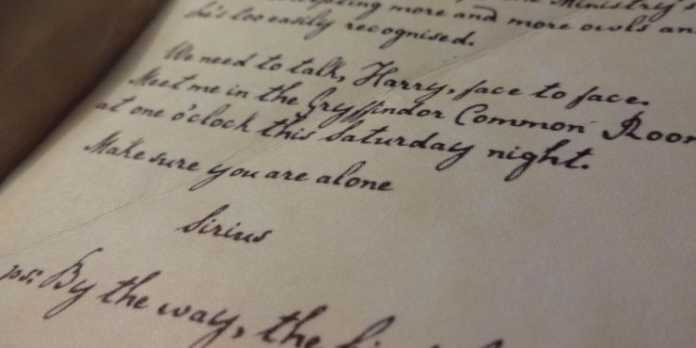 more and more owls an
he's too easily recognised.
We need to talk, Harry, face to face.
Meet me in the Gryffindor Common Roo
at one o'clock this Saturday night.
Make sure you are alone
Sirius
ps: By the way, the